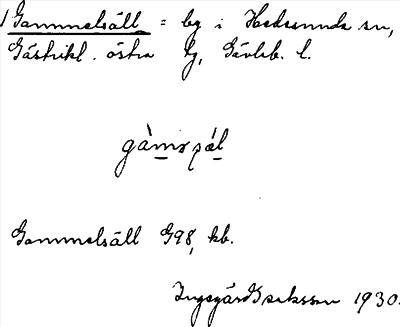 1 Gammelsäll = by i Hedesunda sn,
Gästrikl. östra tg, Gävleb. l.
gàmspál
Gammelsäll G98, kb.
Ingegärd Isaksson 1930.